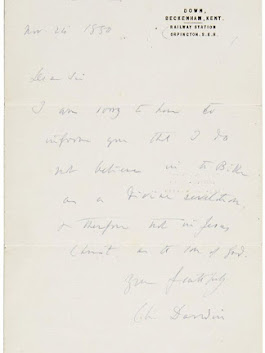 DOWN,
BECKENHAM, KENT.
RAILWAY STATION
ORPINGTON. S.E.R.
Nov. 24 1880
Dear Sir
I am sorry to have to
inform you that I do
not believe in the Bible
as a divine revelation,
& therefore not in Jesus
Christ as the son of God.
Yours faithfully
Ch. Darwin